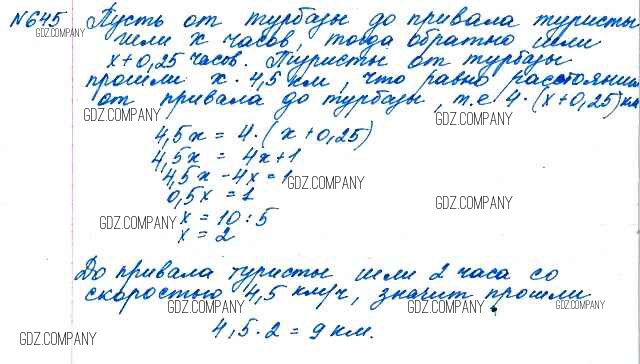 №645 Пусть от турбазы до привала туристы
шли х часов, тогда обратно шли
х+0,25 часов. Туристы от турбазы
прошли х · 4,5 км, что равно расстоянию
от привала до турбазы, т.е 4 · (х+0,25) км
4,5х = 4 · (х+0,25)
4,5х = 4х+1
4,5х - 4х = 1
0,5х = 1
х = 10 : 5
х = 2
До привала туристы шли 2 часа со
скоростью 4,5 км/ч, значит прошли
4,5 · 2 = 9 км.
GDZ.COMPANY
GDZ.COMPANY
GDZ.COMPANY
GDZ.COMPANY
GDZ.COMPANY
GDZ.COMPANY
GDZ.COMPANY
GDZ.COMPANY
GDZ.COMPANY
GDZ.COMPANY
GDZ.COMPANY
GDZ.COMPANY
GDZ.COMPANY